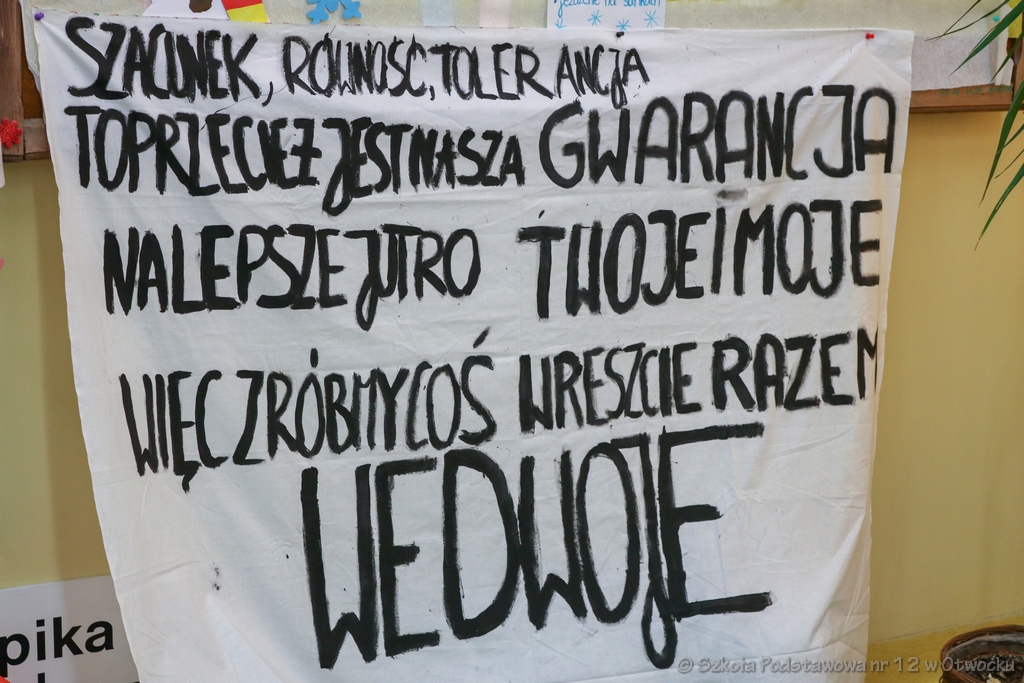 jeżdżenie na sankach
SZACUNEK, RÓWNOŚĆ, TOLERANCJA
TO PRZECIEŻ JEST NASZA GWARANCJA
NA LEPSZE JUTRO TWOJE I MOJE
WIĘC ZRÓBMY COŚ WRESZCIE RAZEM
WE DWOJE
pika
© Szkoła Podstawowa nr 12 w Otwocku